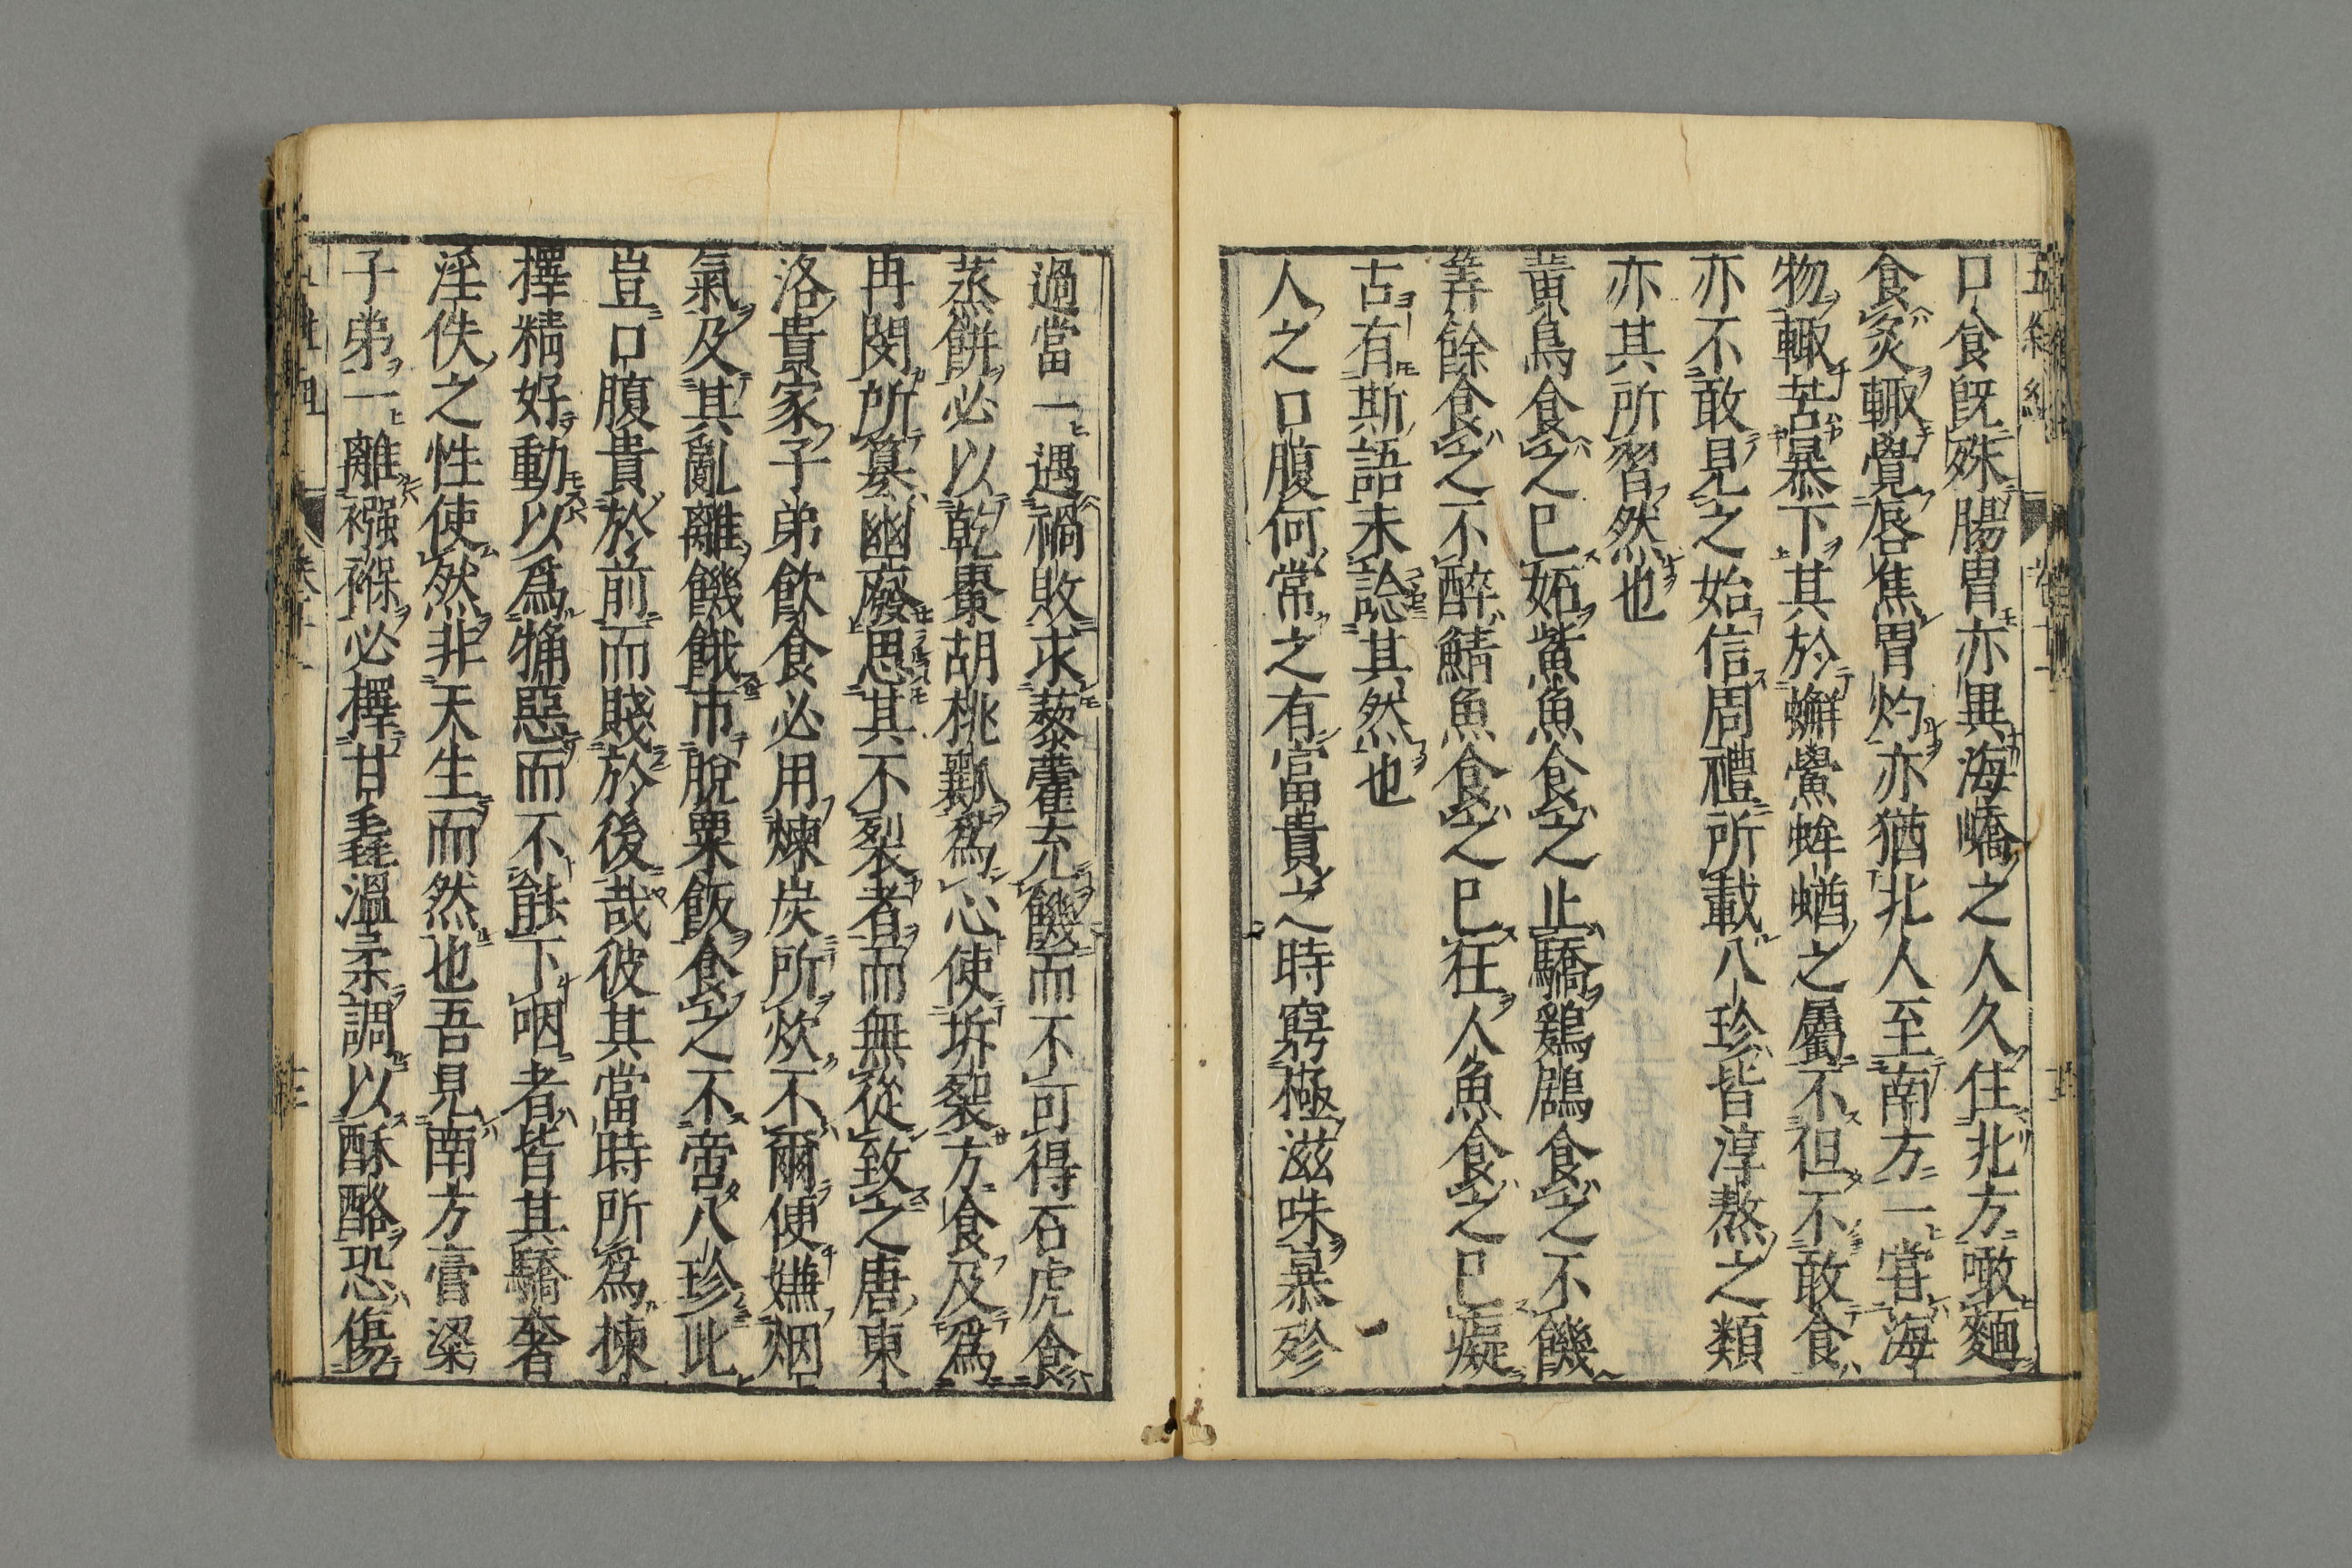 口食既殊腸胃亦異海嶠之人久住北方啖麵
食炙輙覺唇焦胃灼亦猶北人至南方一嘗海
物輙苦暴下其於蠏鱟蛑蝤之屬不但不敢食
亦不敢見之始信周禮所載八珍皆淳熬之類
亦其所習然也
黄鳥食之已妬鮆魚食之止驕鶏鶋食之不饑
箅餘食之不醉鯖魚食之已狂人魚食之已癡
古有斯語未諗其然也
人之口腹何常之有富貴之時窮極滋味暴殄
過當一遇禍敗求藜藿充饑而不可得石虎食
蒸餅必以乾棗胡桃瓤爲心使坼裂方食及爲
冉閔所簒幽廢思其不裂者而無從致之唐東
洛貴家子弟飲食必用煉炭所炊不爾便嫌烟
氣及其亂離饑餓市脫粟飯食之不啻八珍此
豈口腹貴於前而賤於後哉彼其當時所爲揀
擇精好動以爲觕惡而不能下咽者皆其驕奢
淫佚之性使然非天生而然也吾見南方膏粱
子弟一離襁褓必擇甘毳溫柔調以酥酪恐傷